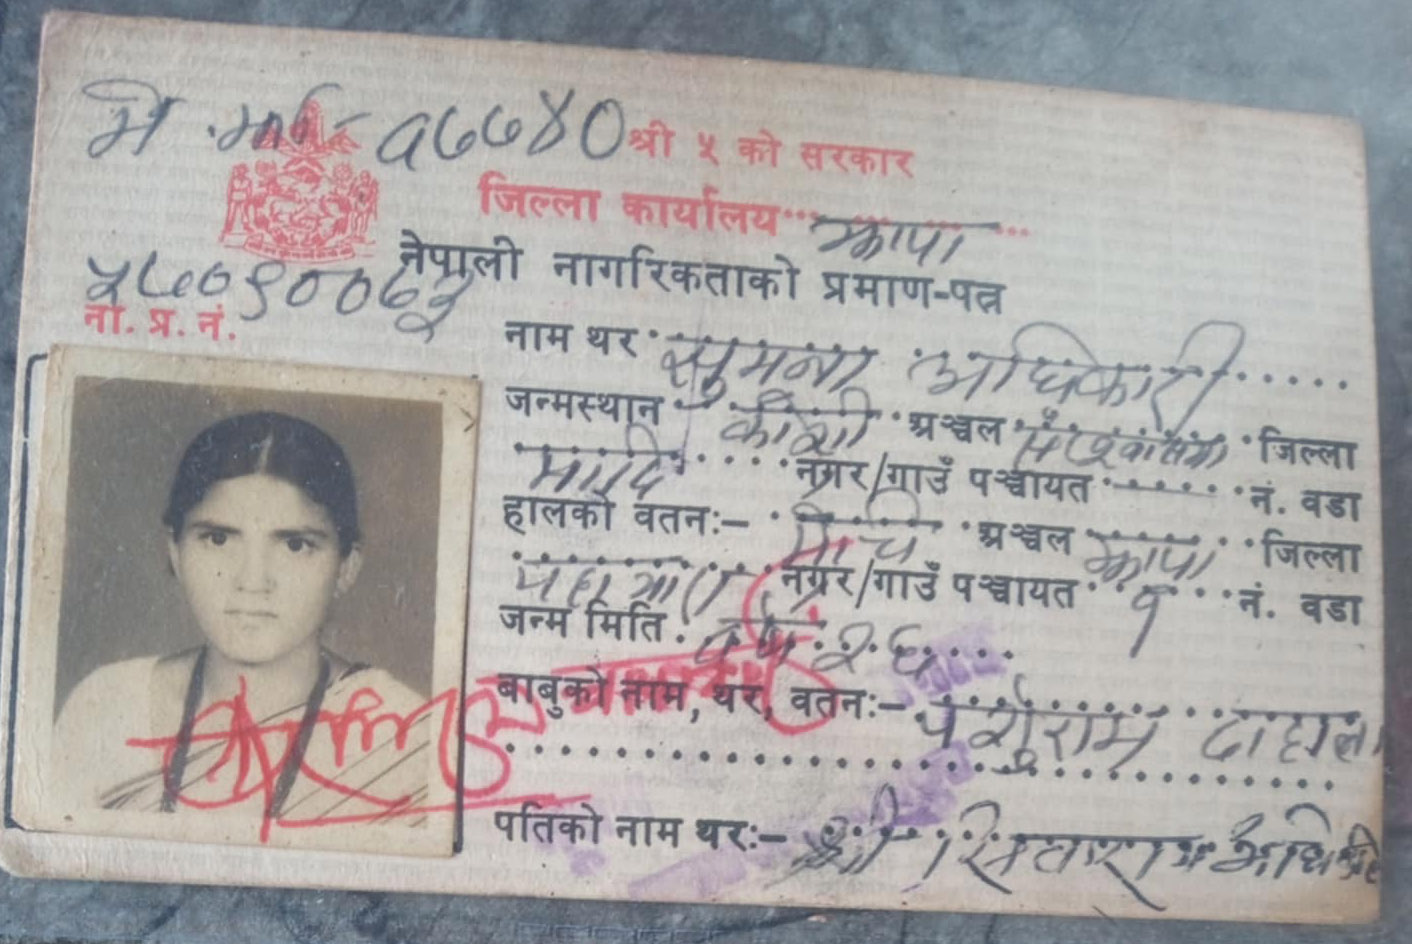 मे. झा. १७७४० श्री ५ को सरकार
जिल्ला कार्यालय झापा
नेपाली नागरिकताको प्रमाण-पत्र
ना. प्र. नं.
नाम थर सुमना अधिकारी
जन्मस्थान कोशी अञ्चल जिल्ला
मादि नगर/गाउँ पञ्चायत नं. वडा
हालको वतनः- मेचि अञ्चल झापा जिल्ला
नगर/गाउँ पञ्चायत १ नं. वडा
जन्म मिति
बाबुको नाम, थर, वतनः- पर्शुराम दाहाल
पतिको नाम थरः- श्री सिताराम अधिकारी